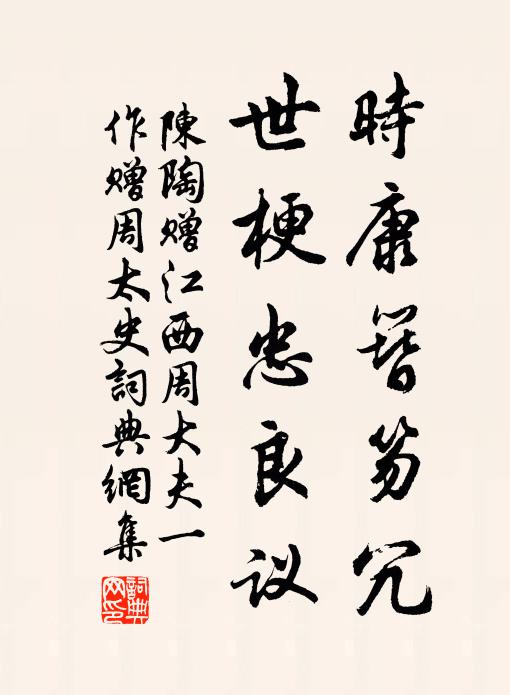 時康簪笏冗
世梗忠良议
陳陶赠江西周大夫一
作赠周太史詞典網集
詞典网印